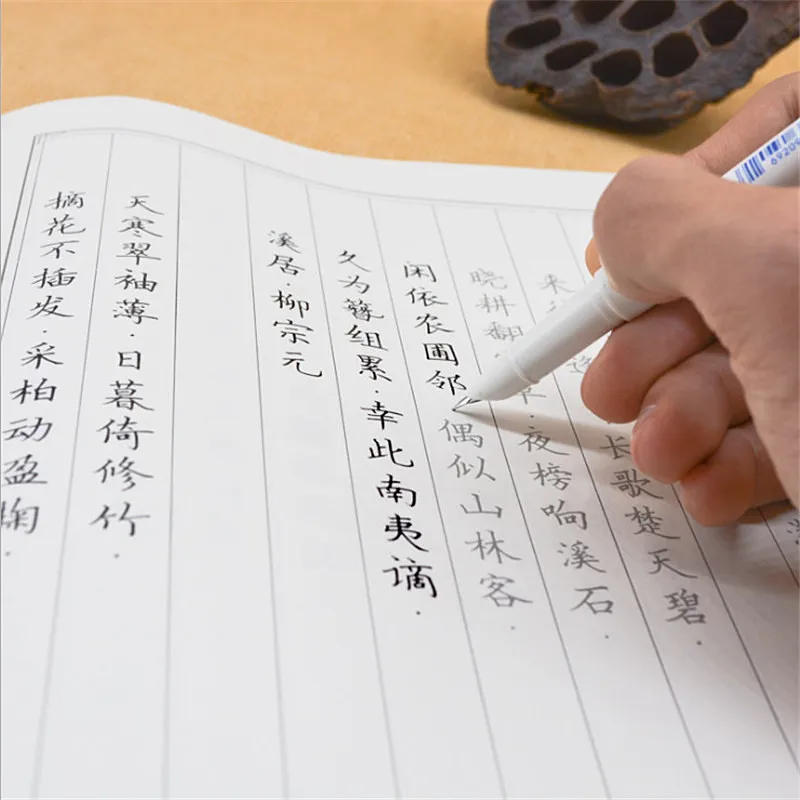 摘花不插发.采柏动盈掬.
天寒翠袖薄.日暮倚修竹.
溪居.柳宗元
久为簪组累.幸此南夷谪.
闲依农圃邻偶似山林客.
晓耕翻草.夜榜响溪石.
来长歌楚天碧.
69209